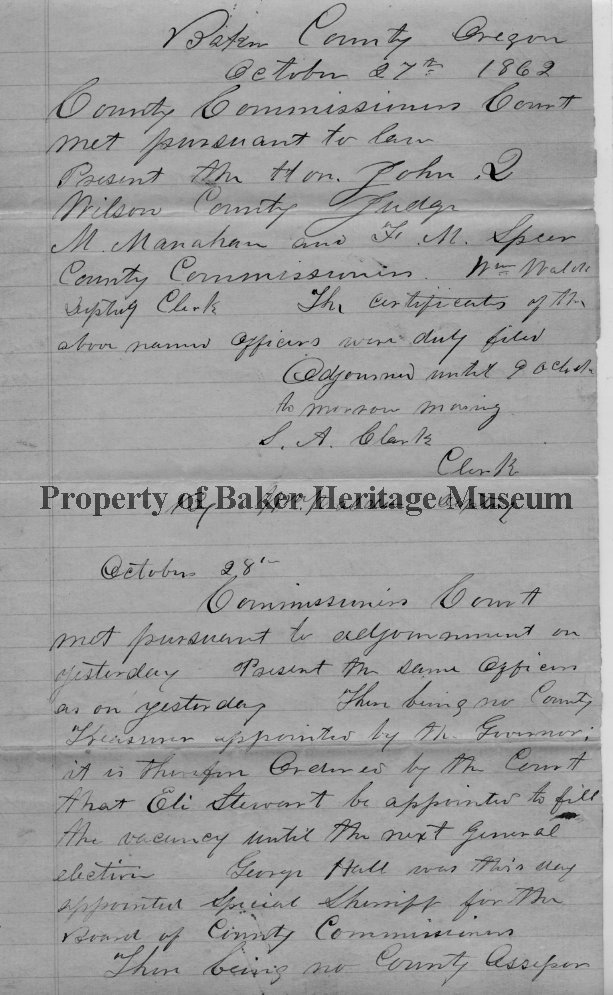 Baker County Oregon
October 27th 1862
County Commissioners Court
met pursuant to law
Present the Hon. John Q
Wilson County Judge
M. Manahan and F. M. Speer
County Commissioners. Wm Waldo
Deputy Clerk The certificates of the
above named officers were duly filed
Adjourned until 9 oclock
to morrow morning
S. A. Clark
Clerk
Property of Baker Heritage Museum
By Wm Deputy
October 28th
Commissioners Court
met pursuant to adjournment on
yesterday Present the same officers
as on yesterday There being no County
Treasurer appointed by the Governor;
it is therefore Ordered by the Court
that Eli Stewart be appointed to fill
the vacancy until the next General
election George Hall was this day
appointed Special Sheriff for the
Board of County Commissioners
There being no County Assessor